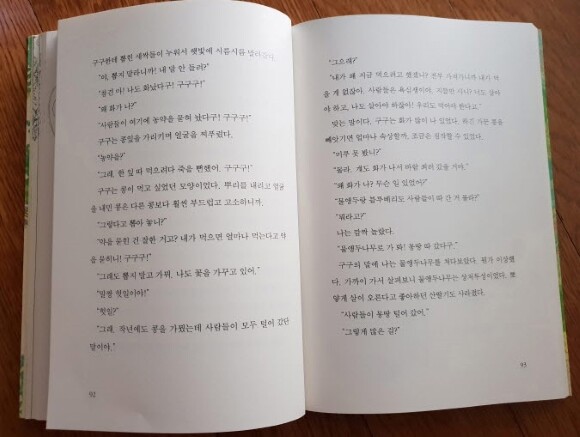 구구한테 뽑힌 새싹들이 누워서 햇볕에 시름시름
"야, 뽑지 말라니까! 내 말 안 들려?"
"참견 마! 나도 화났다구! 구구구!"
"왜 화가 나?"
"사람들이 여기에 농약을 묻혀 놨다구! 구구구!"
구구는 콩잎을 가리키며 얼굴을 찌푸렸다.
"농약을?"
"그래, 한 입 따 먹으려다 죽을 뻔했어, 구구구!"
구구는 콩이 먹고 싶었던 모양이었다. 뿌리를 내리고 얼굴
을 내민 콩은 다른 콩보다 훨씬 부드럽고 고소하니까.
"그렇다고 뽑아 놓니?"
"약을 묻힌 건 잘한 거고? 내가 먹으면 얼마나 먹는다고 약
을 묻히니! 구구구!"
"그래도 뽑지 말고 가꿔. 나도 꽃을 가꾸고 있어."
"말짱 헛일이야!"
"헛일?"
"그래. 작년에도 콩을 가꿨는데 사람들이 모두 털어 갔단
말이야."
92
"그으래?"
"내가 왜 지금 먹으려고 했겠니? 전부 가져가니까 내가 먹
을 게 없잖아. 사람들은 욕심쟁이야. 지들만 사니? 너도 살아
야 하고, 나도 살아야 하잖아! 우리도 먹어야 한다고."
맞는 말이다. 구구는 화가 많이 나 있었다. 하긴 가꾼 콩을
빼앗기면 얼마나 속상할까. 조금은 짐작할 수 있었다.
"마루 못 봤니?"
"몰라. 걔도 화가 나서 마을 쪄려 갔을 거야."
"왜 화가 나? 무슨 일 있었어?"
"물앵두랑 블루베리도 사람들이 따 간 거 몰라?"
"뭐라고?"
나는 깜짝 놀랐다.
"물앵두나무로 가 봐! 몽땅 따 갔다구."
구구의 말에 나는 물앵두나무를 쳐다보았다. 뭔가 이상했
다. 가까이 가서 살펴보니 물앵두나무는 엉망이었다. 뽀
얗게 살이 오른다고 좋아하던 산딸기도 사라졌다.
"사람들이 몽땅 털어 갔어."
"그렇게 많은 걸?"
93